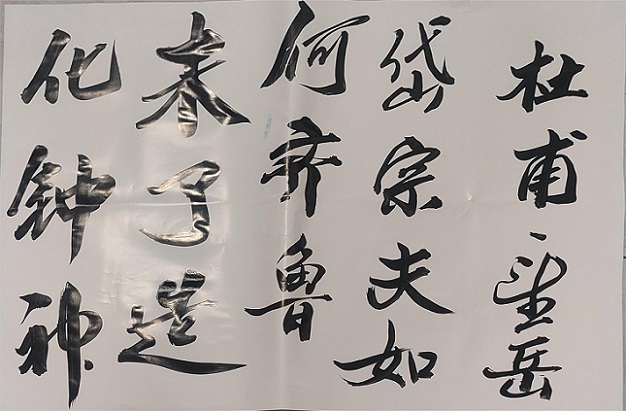 杜甫望岳
岱宗夫如
何齐鲁
未了造
化钟神